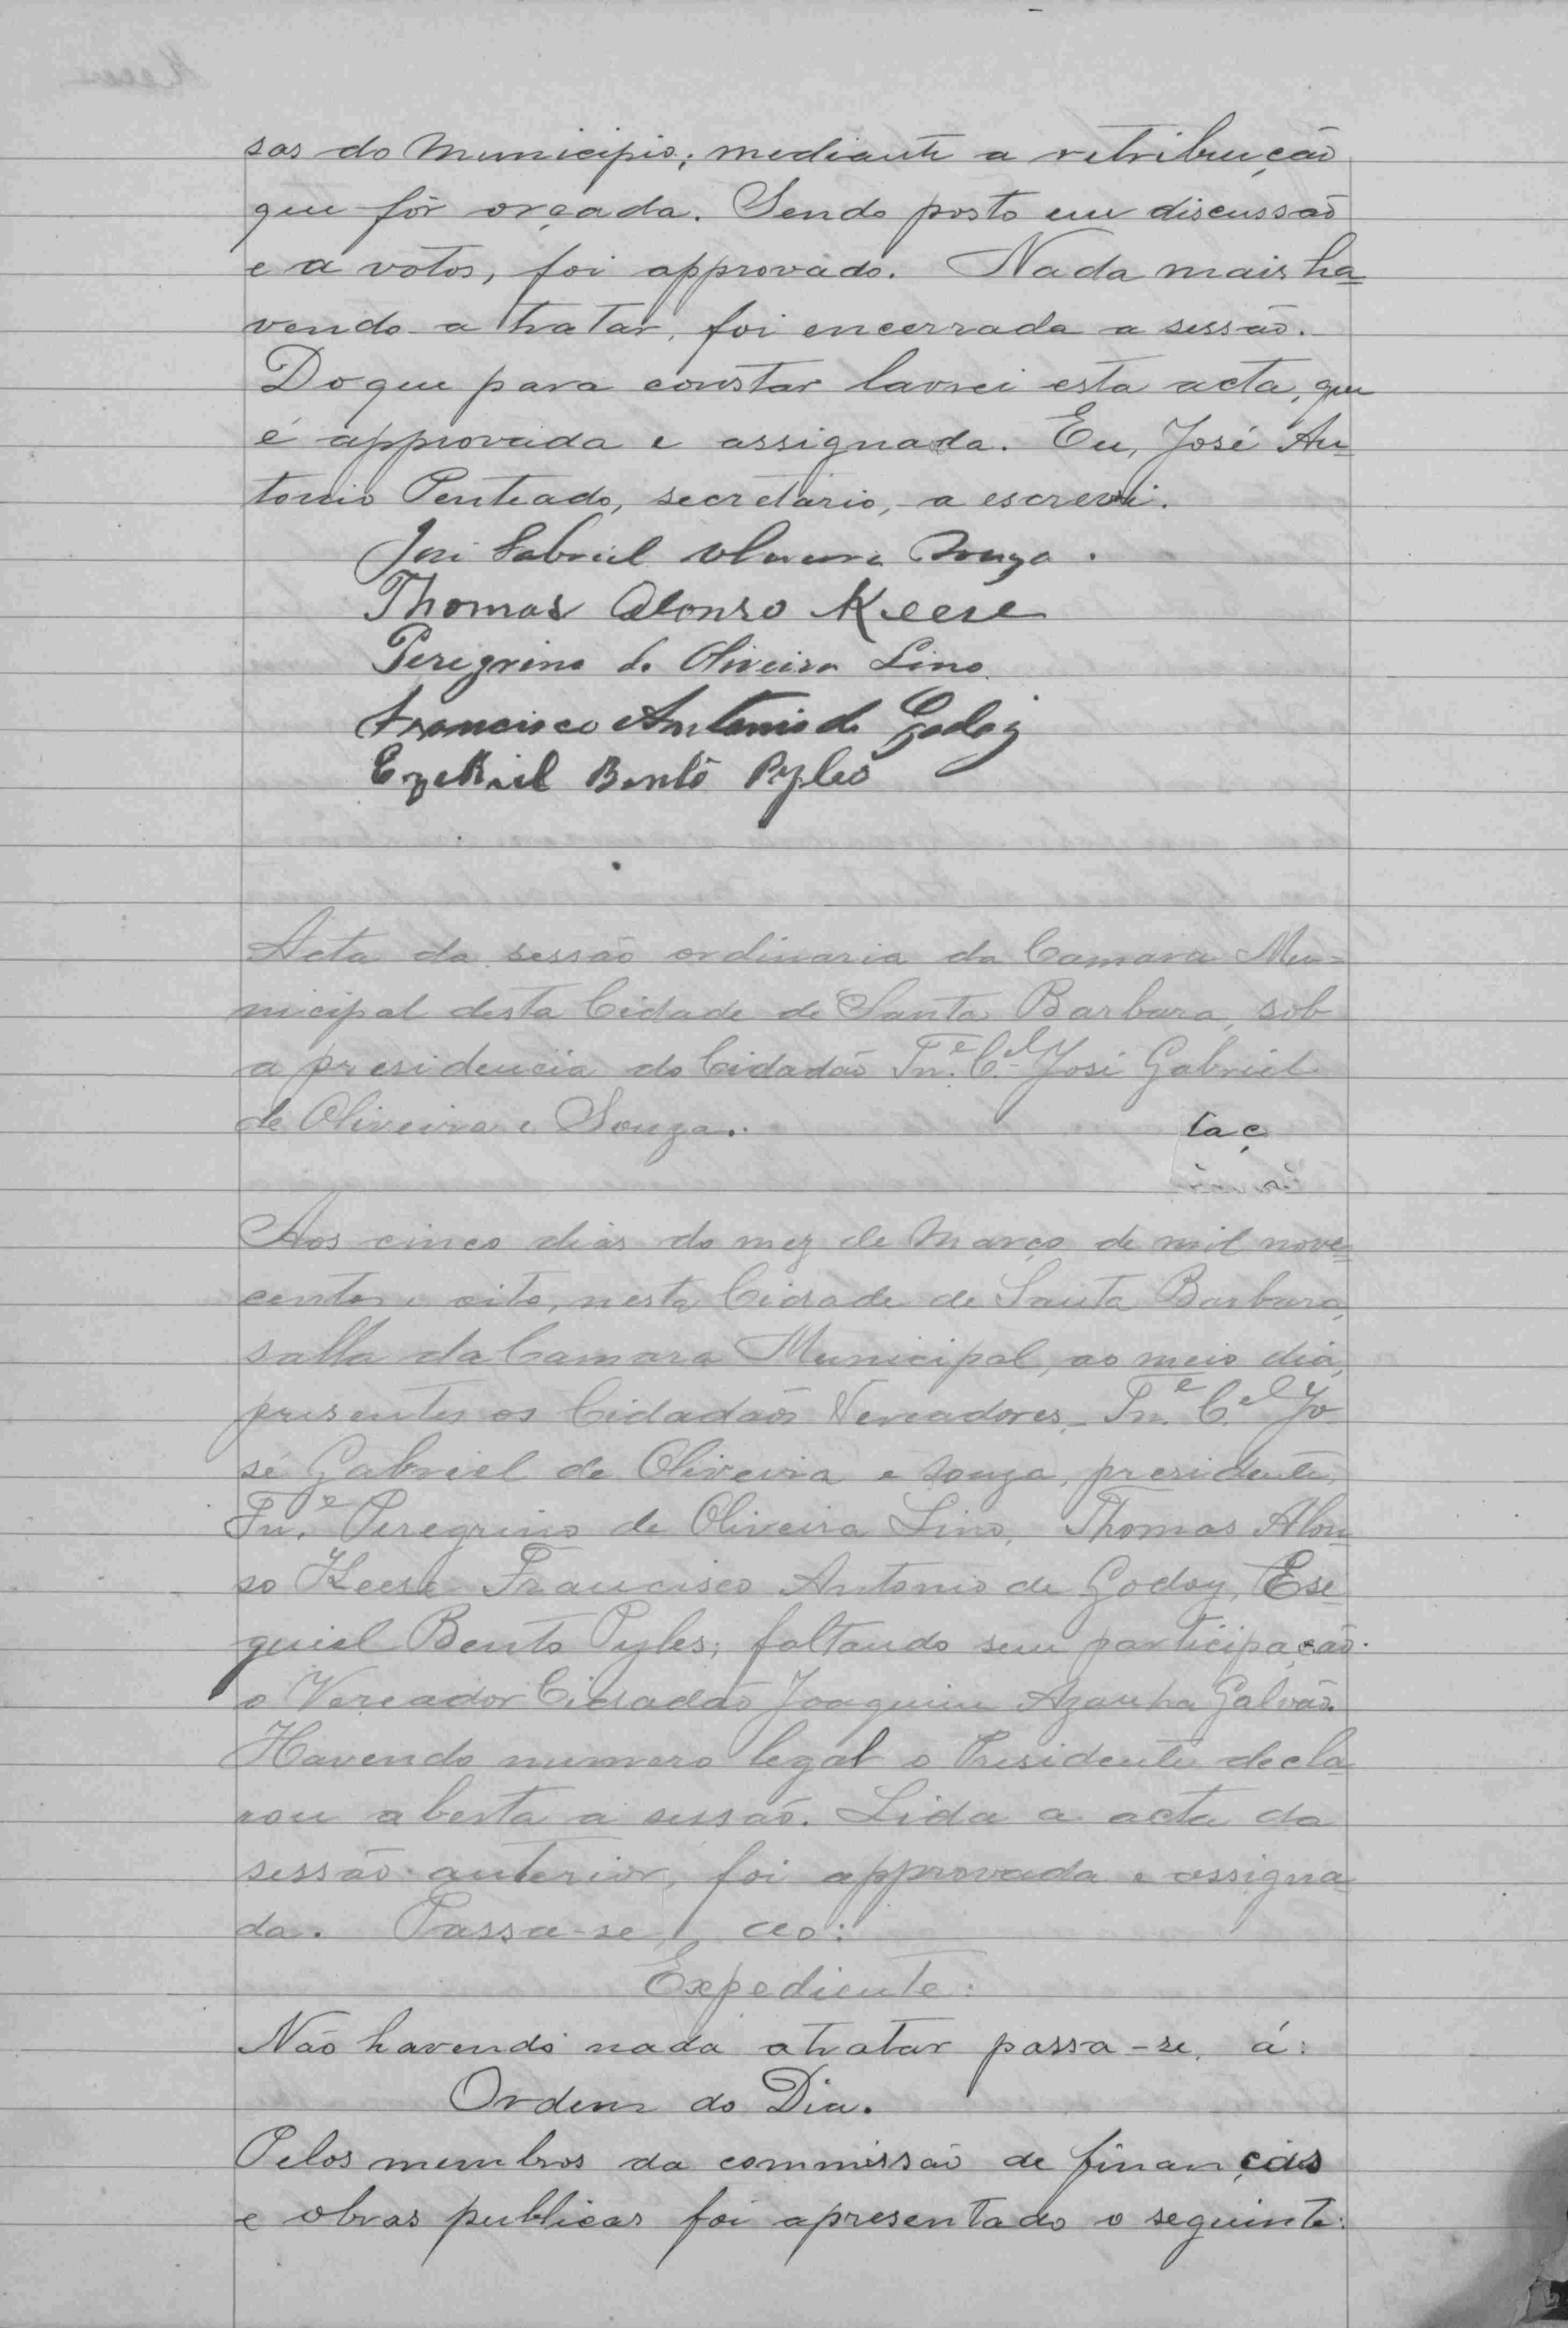 sas do Municipio; mediante a retribuição
que fôr orçada. Sendo posto em discussão
e a votos, foi approvado. Nada mais ha-
vendo a tratar, foi encerrada a sessão.
Do que para constar lavrei esta acta, que
é approvada e assignada. Eu, José An-
tonio Penteado, secretario, a escrevi.
José Gabriel Oliveira Souza.
Thomas Alonso Keese
Peregrino de Oliveira Lino
Francisco Antonio de Godoy
Ezekiel Bento Pyles
Acta da sessão ordinaria da Camara Mu-
nicipal desta Cidade de Santa Barbara, sob
a presidencia do Cidadão Tn.e C.el José Gabriel
de Oliveira e Souza.
taç
Aos cinco dias do mez de Março de mil nove-
centos e oito, nesta Cidade de Santa Barbara,
salla da Camara Municipal, ao meio dia,
presentes os Cidadãos Vereadores, Tn.e C.el Jo-
sé Gabriel de Oliveira e Souza, presidente,
Tn.e Peregrino de Oliveira Lino, Thomas Alon-
so Keese Francisco Antonio de Godoy, Ese-
quiel Bento Pyles; faltando sem participação
o Vereador Cidadão Joaquim Azanha Galvão.
Havendo numero legal o Presidente decla-
rou aberta a sessão. Lida a acta da
sessão anterior, foi approvada e assigna-
da. Passa-se ao:
Expediente:
Não havendo nada a tratar passa-se, á:
Ordem do Dia.
Pelos membros da commissão de finanças
e obras publicas foi apresentado o seguinte: